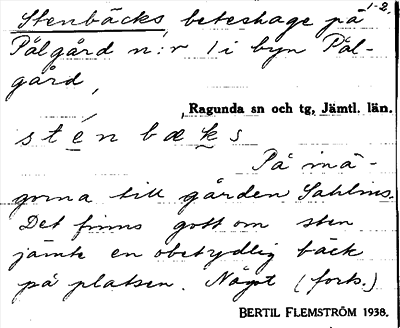 1-2.
Stenbäcks, beteshage på
Pålgård n:r 1 i byn Pål-
gård,
Ragunda sn och tg, Jämtl. län.
sténbæks
På inä-
gorna till gården Sahlins.
Det finns gott om sten
jämte en obetydlig bäck
på platsen. Något (forts.)
BERTIL FLEMSTRÖM 1938.